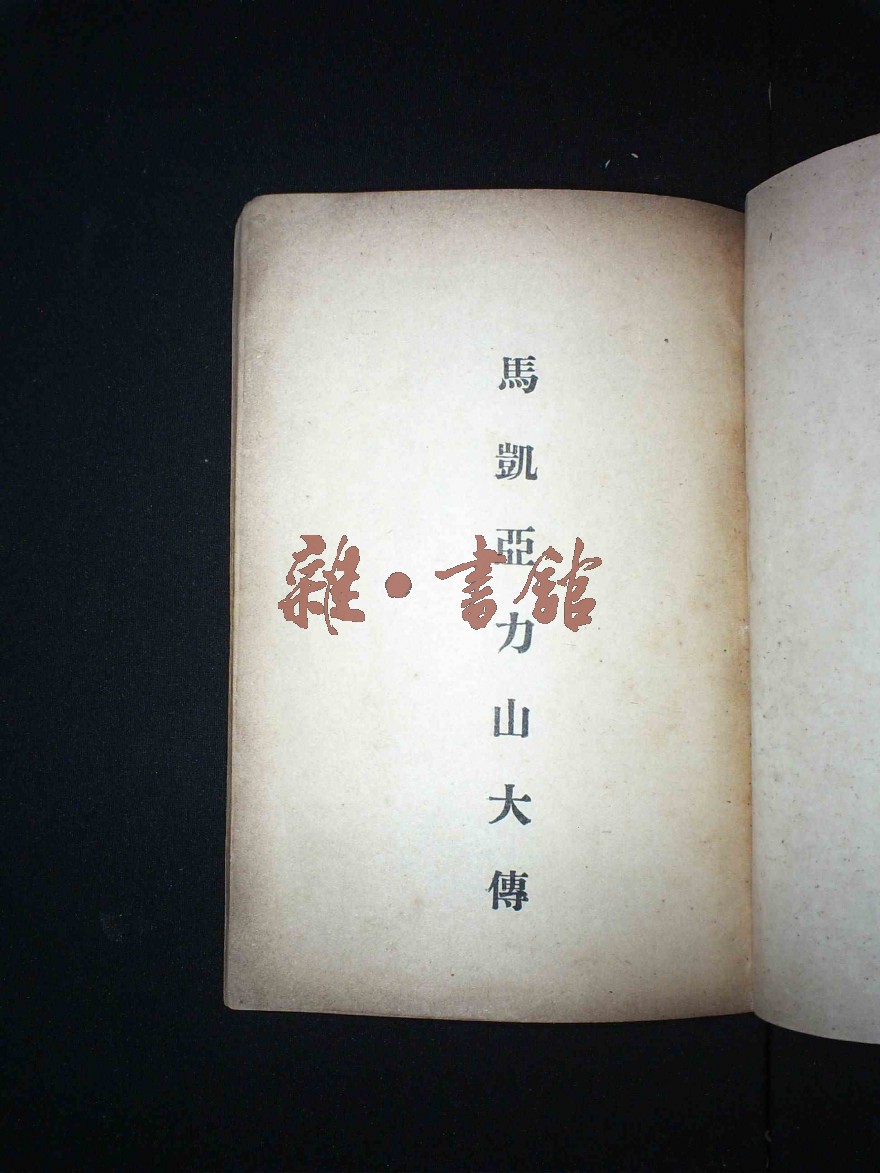 馬凱亞力山大傳
雜·書館